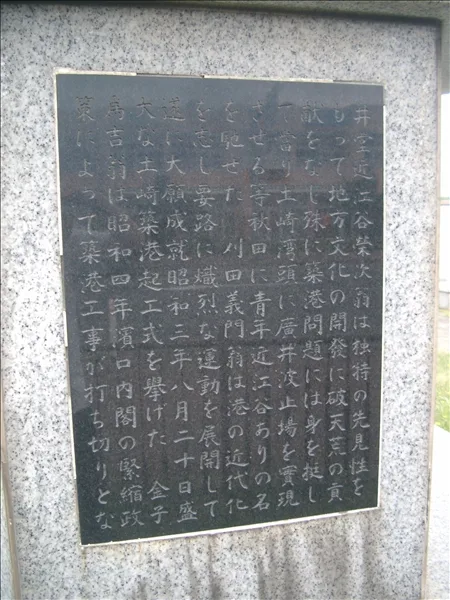 井堂近江谷榮次翁は独特の先見性を
もって地方文化の開發に破天荒の貢
献をなし殊に築港問題には身を挺し
て當り土崎湾頭に廣井波止場を實現
させる等秋田に青年近江谷ありの名
を馳せた 川田義門翁は港の近代化
を志し要路に熾烈な運動を展開して
遂に大願成就昭和三年八月二十日盛
大な土崎築港起工式を擧げた 金子
萬吉翁は昭和四年濱口内閣の緊縮政
策によって築港工事が打ち切りとな